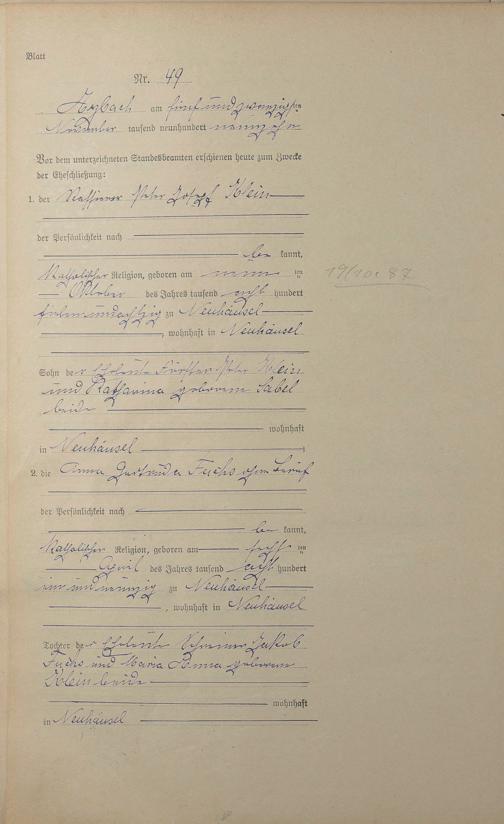 Blatt
Nr. 49
Arzbach am fünfundzwanzigsten
November tausend neunhundert neunzehn
Vor dem unterzeichneten Standesbeamten erschienen heute zum Zwecke
der Eheschließung:
1. der Kassierer Peter Josef Klein
der Persönlichkeit nach
be kannt,
Katholischer Religion, geboren am neun ten
19/10. 87
Oktober des Jahres tausend acht hundert
siebenundachtzig zu Neuhäusel
, wohnhaft in Neuhäusel
Sohn der Eheleute Förster Peter Klein
und Katharina geborene Sabel
beide
wohnhaft
in Neuhäusel
2. die Anna Gertruda Fuchs ohne Beruf
der Persönlichkeit nach
be kannt,
Katholischer Religion, geboren am ten
April des Jahres tausend acht hundert
ein und neunzig zu Neuhäusel
, wohnhaft in Neuhäusel
Tochter der Eheleute Schreiner Jakob
Fuchs und Maria Anna geborene
Klein beide
wohnhaft
in Neuhäusel